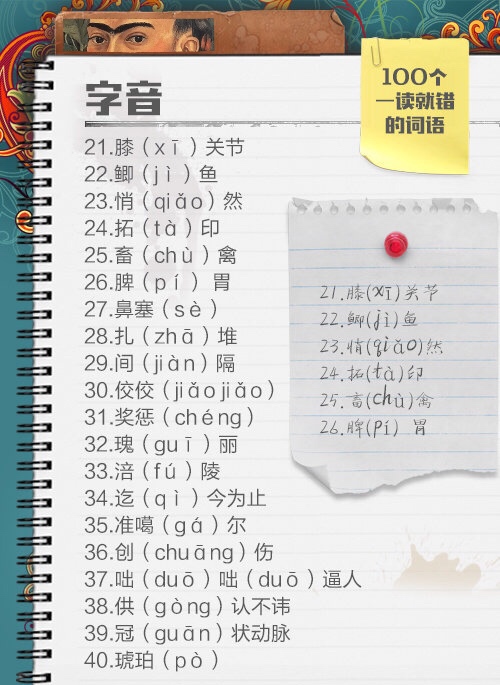 100个
一读就错
的词语
字音
21.膝（xī）关节
22.鲫（jì）鱼
23.悄（qiǎo）然
24.拓（tà）印
25.畜（chù）禽
26.脾（pí） 胃
27.鼻塞（sè）
28.扎（zhā）堆
29.间（jiàn）隔
30.佼佼（jiǎojiǎo）
31.奖惩（chéng）
32.瑰（guī）丽
33.涪（fú）陵
34.迄（qì）今为止
35.准噶（gá）尔
36.创（chuāng）伤
37.咄（duō）咄（duō）逼人
38.供（gòng）认不讳
39.冠（guān）状动脉
40.琥珀（pò）
21.膝(xī)关节
22.鲫(jì)鱼
23.悄(qiǎo)然
24.拓(tà)印
25.畜(chù)禽
26.脾(pí) 胃